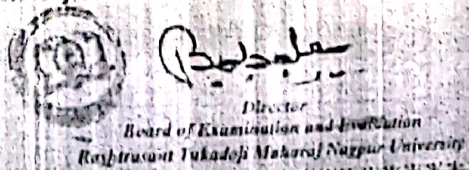 Director
Board of Examination and Evaluation
Rashtrasant Tukadoji Maharaj Nagpur University